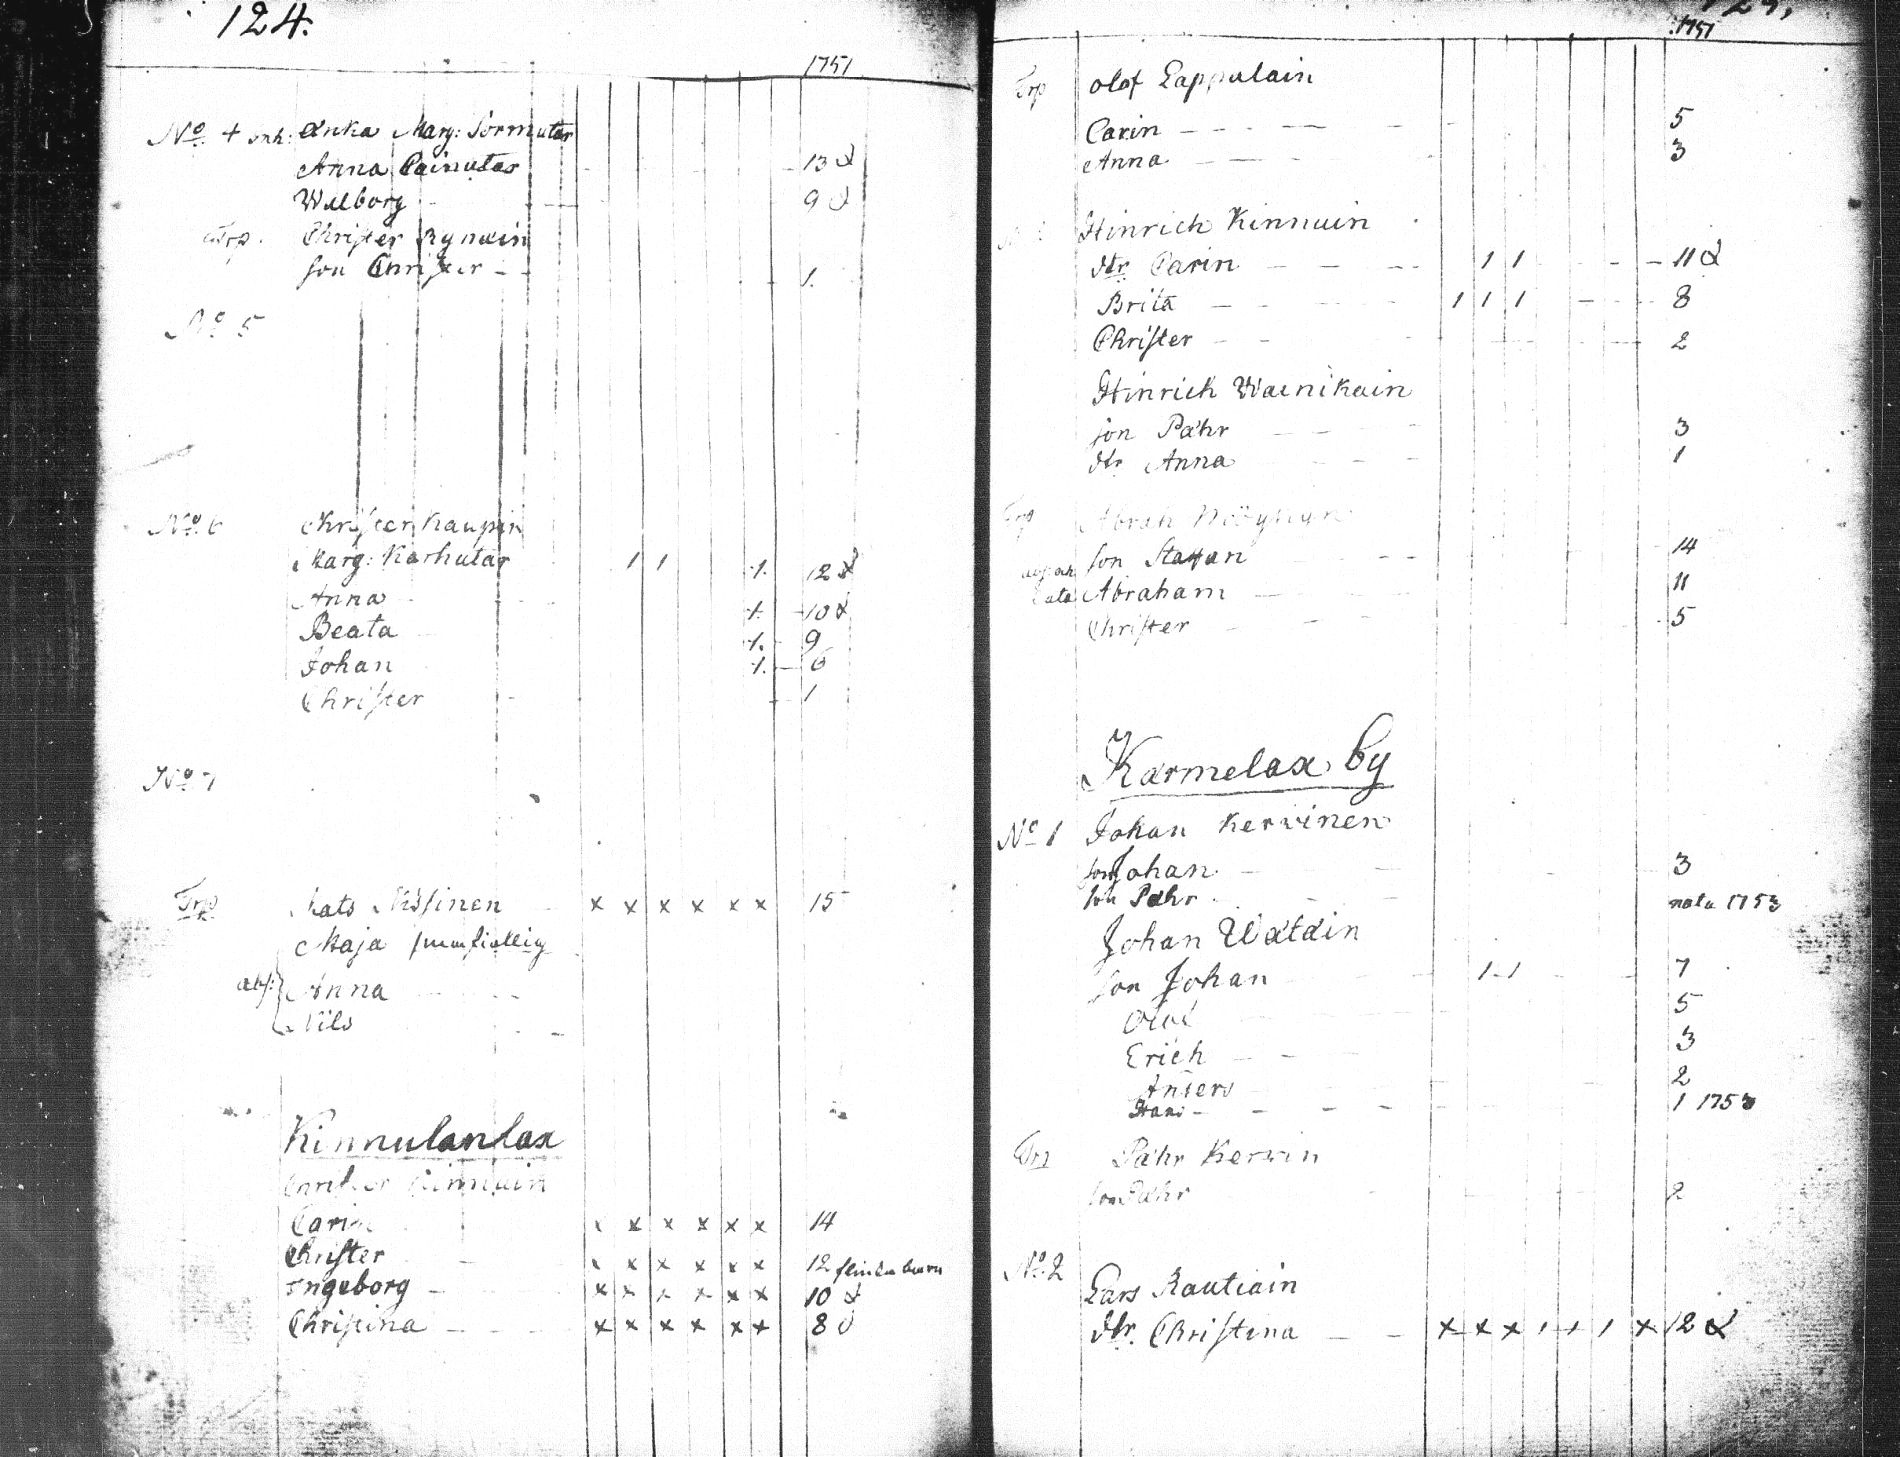 124.
1751
No 4 inh: Enka Marg: Sormutar
Anna Painutar 13
Walborg 9
Trp. Christer Rynain
son Christer 1.
No 5
No 6 Christer Kaupin
Marg: Karhutar 1 1 1. 12
Anna 1. 10
Beata 1. 9
Johan 1. 6
Christer 1
No 7
Trp Mats Nissinen x x x x x x 15
Maja
abs: Anna
Nils
Kinnulanlax
Christer Kinnuin
Carin x x x x x 14
Christer x x x x x 12
Ingeborg x x x x x x 10
Christina x x x x x x 8
1751
Trp Olof Lappalain
Carin 5
Anna 3
Hinrich Kinnuin
dtr. Carin 1 1 11
Brita 1 1 1 8
Christer 2
Hinrich Wainikain
son Pähr 3
dtr Anna 1
Trp Abrah
son Staffan 14
Abraham 11
Christer 5
Karmelax by
No 1 Johan Kerwinen
son Johan 3
son Pähr nata 1753
Johan Watain
son Johan 1 1 7
Olof 5
Erich 3
Anders 2
Hans 1 1753
Trp Pähr Kerwin
son Pähr 2
No 2
Lars Rautiain
dtr. Christina x x x 1 1 1 x 12